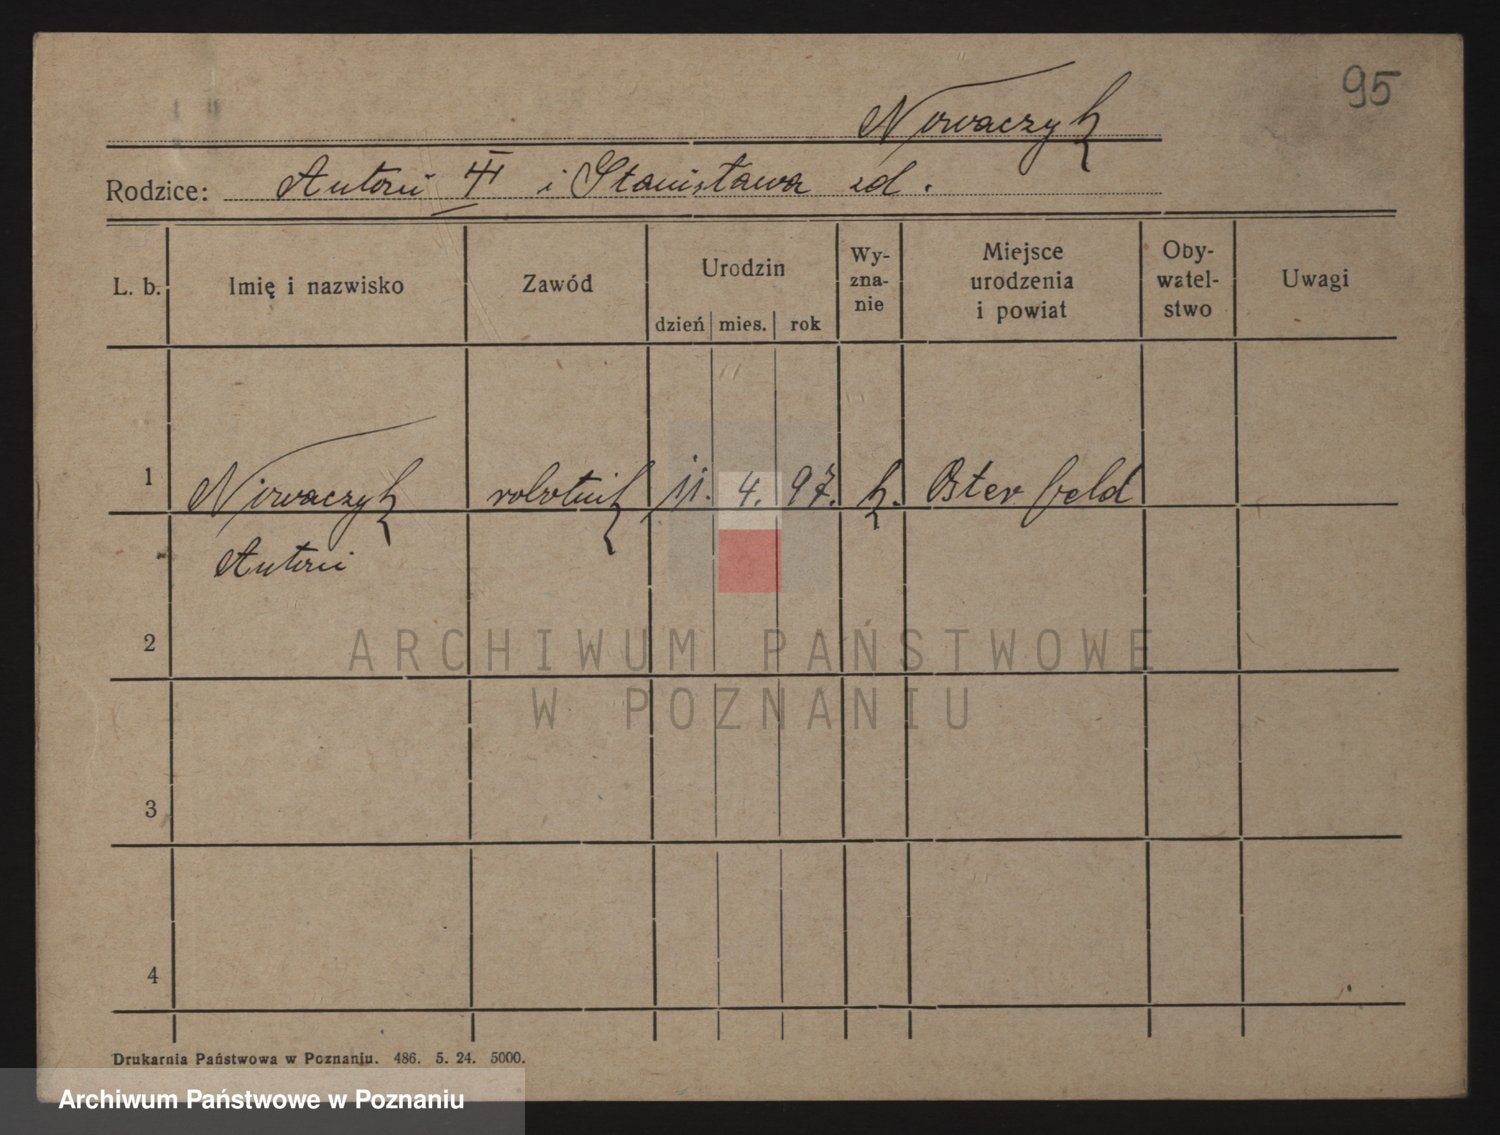 95
Nowaczyk
Rodzice: Antoni i Stanisława zd.
L. b. Imię i nazwisko Zawód Urodzin dzień mies. rok Wy-zna-nie Miejsce urodzenia i powiat Oby-watel-stwo Uwagi
1 Nowaczyk robotnik 11. 4. 97. k. Osterfeld
Antoni
2
ARCHIWUM PAŃSTWOWE
W POZNANIU
3
4
Drukarnia Państwowa w Poznaniu. 486. 5. 24. 5000.
Archiwum Państwowe w Poznaniu